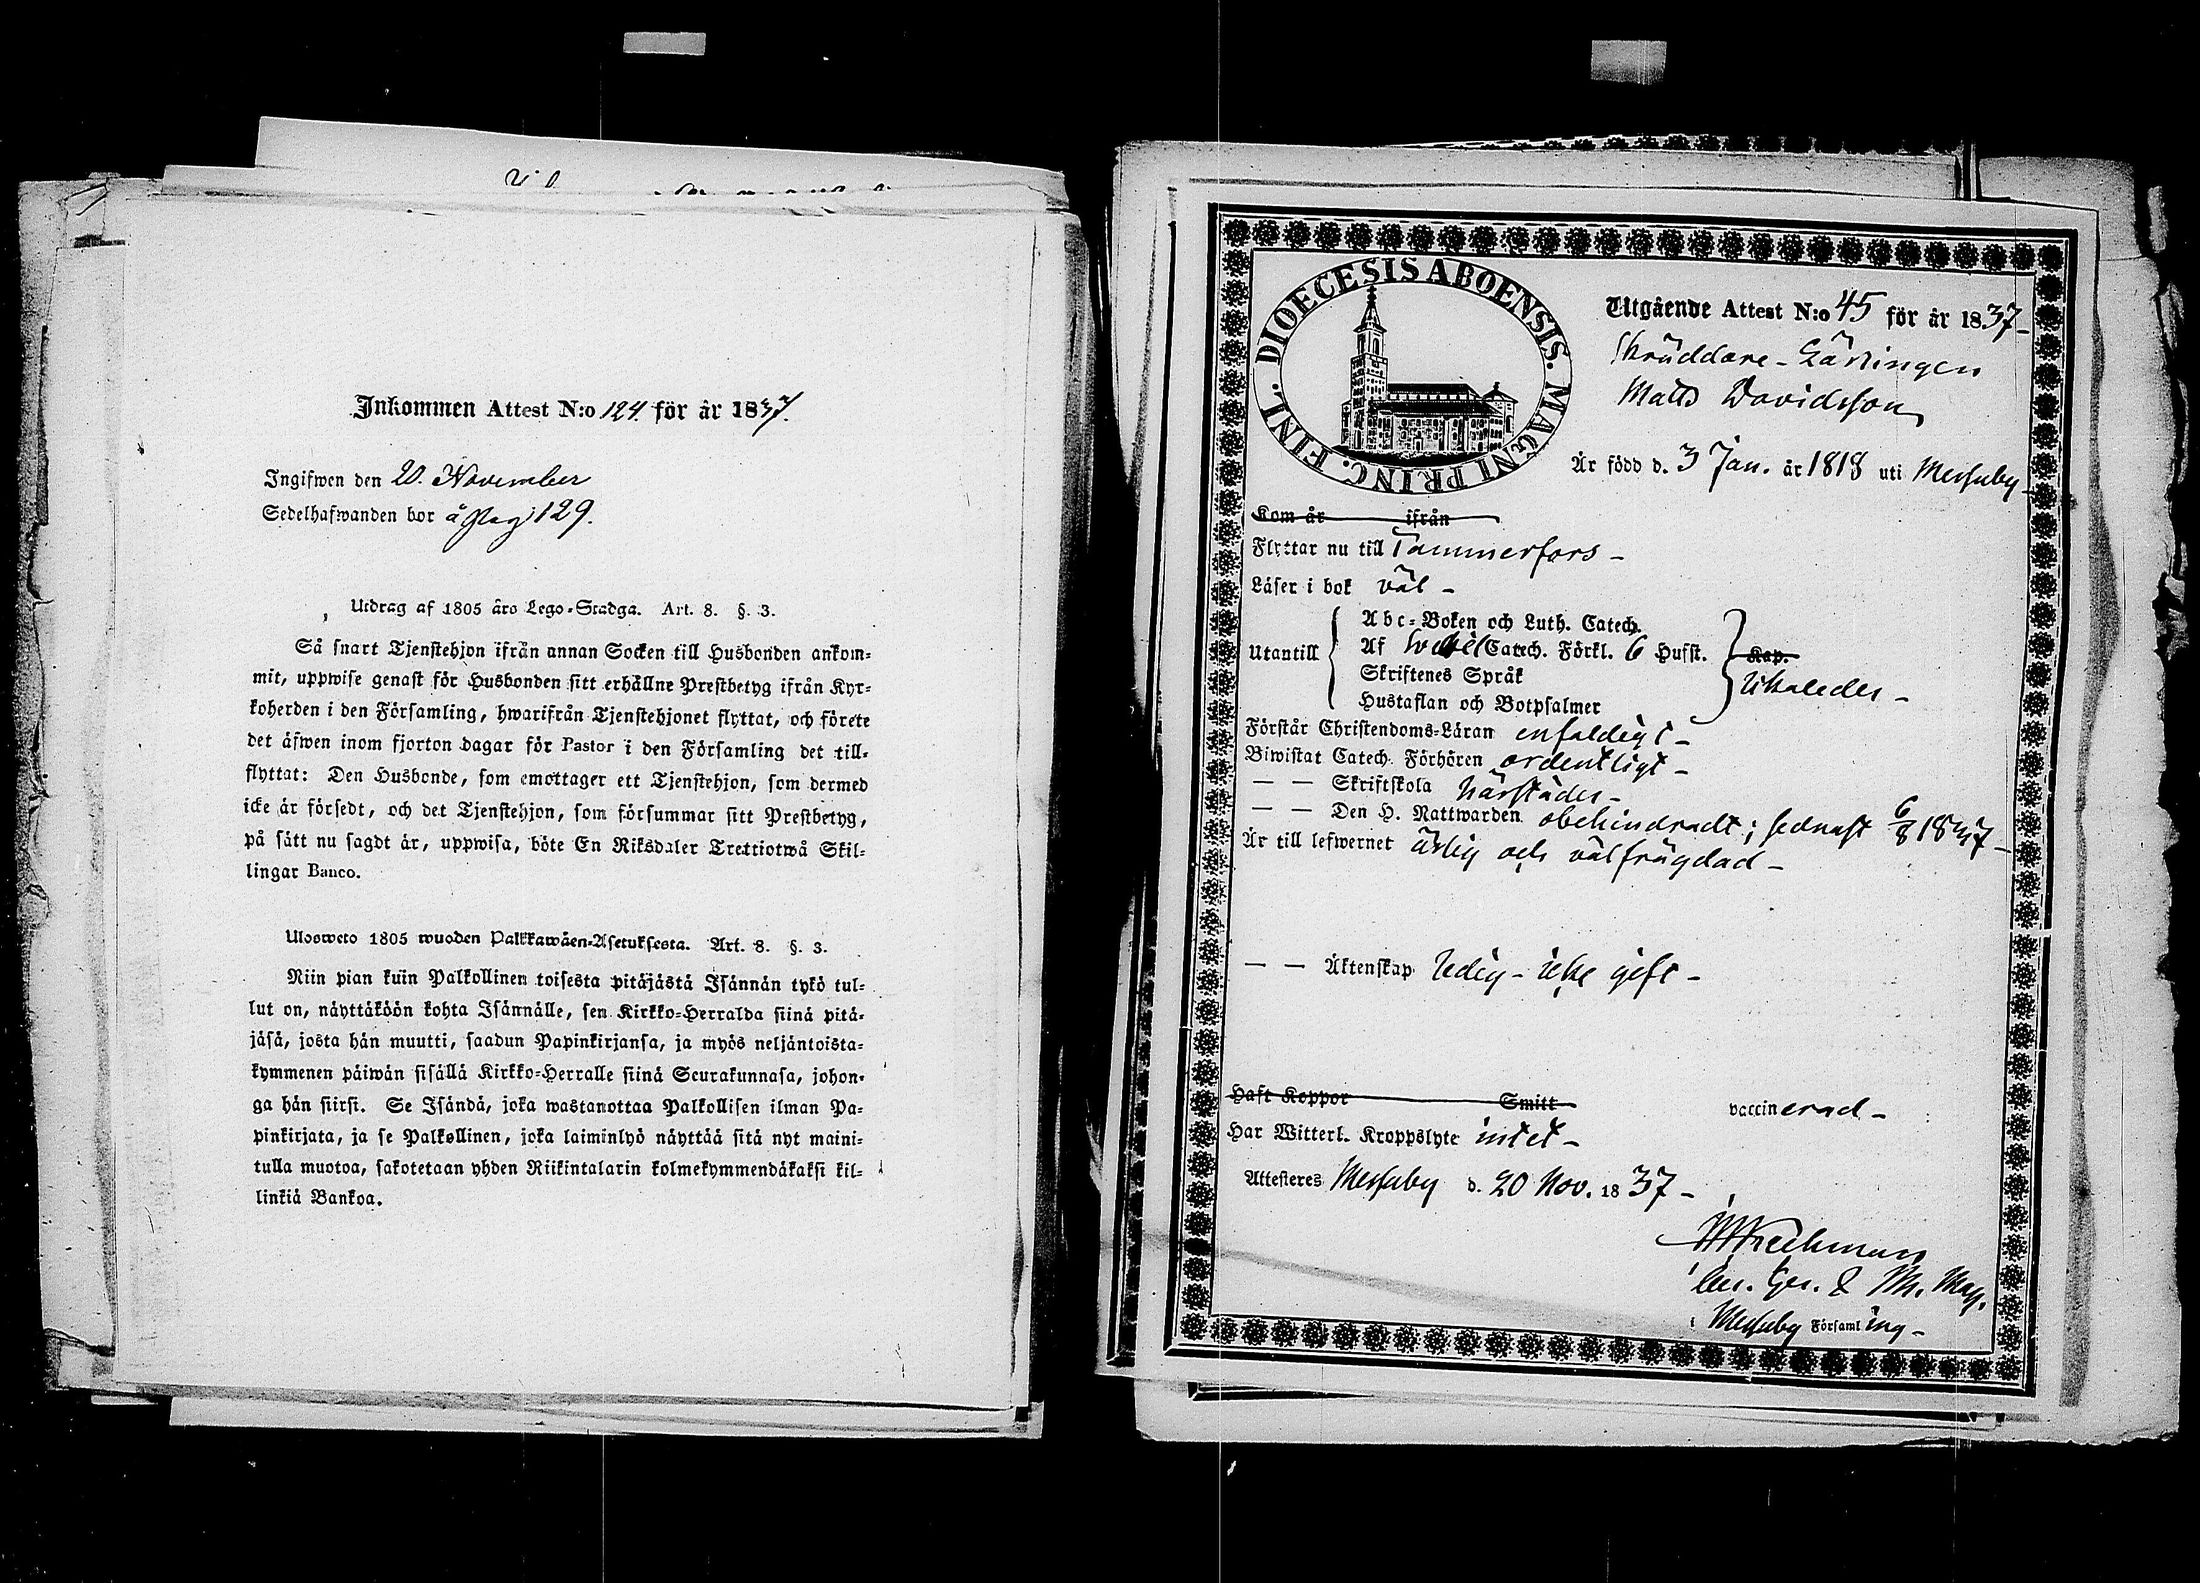 Inkommen Attest N:o 124 för år 1837.
Ingifwen den 20. November
Sedelhafwanden bor å pag 129.
Utdrag af 1805 års Lego-Stadga. Art. 8. §. 3.
Så snart Tjenstehjon ifrån annan Socken till Husbonden ankom-
mit, uppwise genast för Husbonden sitt erhållne Prestbetyg ifrån Kyr-
koherden i den Församling, hwarifrån Tjenstehjonet flyttat, och förete
det äfwen inom fjorton dagar för Pastor i den Församling det till-
flyttat: Den Husbonde, som emottager ett Tjenstehjon, som dermed
icke är försedt, och det Tjenstehjon, som försummar sitt Prestbetyg,
på sätt nu sagdt är, uppwisa, böte En Riksdaler Trettiotwå Skil-
lingar Banco.
Ulosweto 1805 wuoden Palkkawäen-Asetuksesta. Art. 8. §. 3.
Niin pian kuin Palkollinen toisesta pitäjästä Isännän tykö tul-
lut on, näyttäköön kohta Isännälle, sen Kirkko-Herralda siinä pitä-
jäsä, josta hän muutti, saadun Papinkirjansa, ja myös neljäntoista-
kymmenen päiwän sisällä Kirkko-Herralle siinä Seurakunnasa, johon-
ga hän siirsi. Se Isändä, joka wastanottaa Palkollisen ilman Pa-
pinkirjata, ja se Palkollinen, joka laiminlyö näyttää sitä nyt maini-
tulla muotoa, sakotetaan yhden Riikintalarin kolmekymmendäkaksi kil-
linkiä Bankoa.
DIOECESIS ABOENSIS. MAGNI PRINC. FINL.
Utgående Attest N:o 45 för år 1837
Skräddare-Lärlingen
Matts Davidsson
Är född d. 3 Jan. år 1818 uti Messuby
Kom år ifrån
Flyttar nu till Tammerfors
Läser i bok väl
Utantill
Abc-Boken och Luth. Catech.
Af Catech. Förkl. 6 Hufst.
Skriftenes Språk
Hustaflan och Botpsalmer
Kap.
Förstår Christendoms-Läran enfaldigt
Biwistat Catech. Förhören ordentligt
— — Skriftskola härstädes
— — Den H. Nattwarden obehindradt; sednast 6/8 1837
Är till lefwernet ärlig och välfrägdad
— — Äktenskap ledig - icke gift
Haft Koppor Smitt vaccinerad
Har Witterl. Kroppslyte intet
Attesteres Messuby d. 20 Nov. 1837
i Messuby Församling